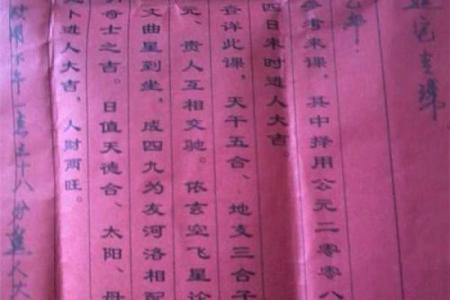 参考来课。其中择用公元二零零八
四日未时进人大吉。
查详此课。天午五合、地支三合子
元、贵人互相交驰。依玄空飞星论
文曲星到坐。成四九为友河洛相配
奇士之吉。日值天德合、太阳、母
卜进人大吉。人财两旺。
下午一点三十八分